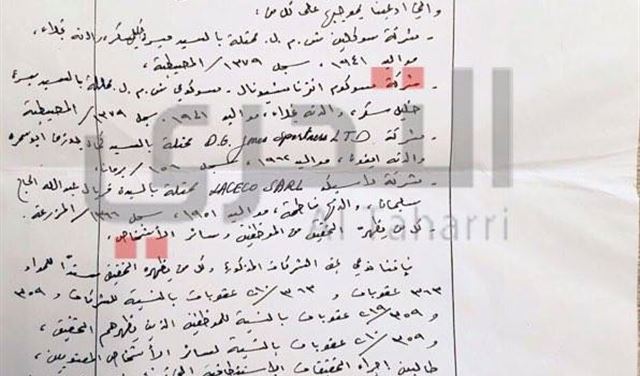 والتي ادعينا بموجبها على كل من:
- شركة سوكلين ش.م.ل. ممثلة بالسيد ميسرة خليل سكر، والدته نجلاء،
مواليد ١٩٤١، سجل ١٣٧٩/ المصيطبة،
- شركة سوكومي انترناشيونال - سوكومي ش.م.ل. ممثلة بالسيد ميسرة
خليل سكر، والدته نجلاء، مواليد ١٩٤١، سجل ١٣٧٩/ المصيطبة
- شركة D.G. Jones & partners LTD. ممثلة بالسيد
والدته مواليد ١٩٦٢، سجل ١٥٦/
- شركة لاسيكو LACECO SARL ممثلة بالسيدة فريال عبدالله الحاج
سليمان، والدتها فاطمة، مواليد ١٩٥١، سجل ١٣٦٦/ المزرعة.
- كل من يظهره التحقيق من الموظفين وسائر الأشخاص،
بحق الشركات المذكورة وكل من يظهره التحقيق سنداً للمواد
٣٦٣ عقوبات و ٣٦٣/٢١٠ عقوبات بالنسبة للشركات و ٣٥٩
و ٣٥٩/٢١٩ عقوبات بالنسبة للموظفين الذين يظهرهم التحقيق،
و ٣٥٩/٢١٠ عقوبات بالنسبة لسائر الأشخاص المعنويين،
طالبين إجراء التحقيقات الاستنطاقية
التحري
Al Taharri